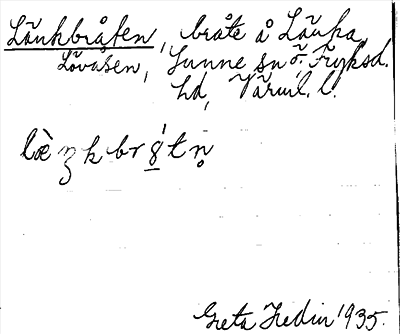 Länkbråten, bråte å Länka,
Lövåsen, Sunne sn Ö. Fryksd.
hd, Värml. l.
læ̀ŋkbrɷ́tn̥
Greta Hedin 1935.